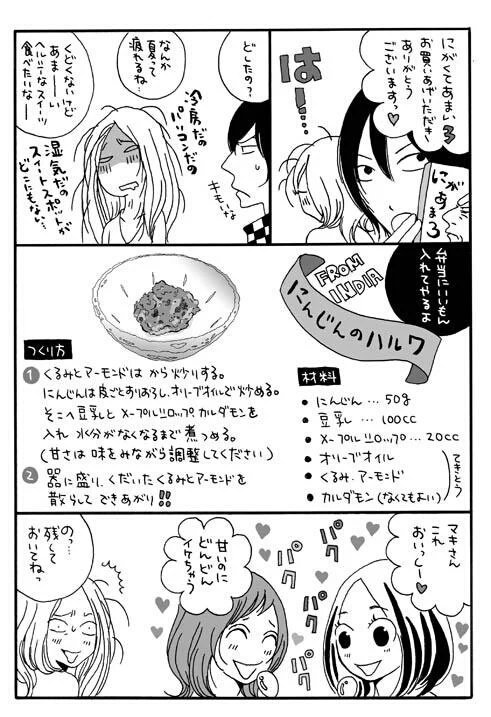 にがくてあまい3
お買いあげいただき
ありがとう
ございますっ♥
にが
あま3
はー…
どしたの?
キモいな
なんか
夏って
疲れるね…
冷房だの
パソコンだの
くどくないけど
あまーい
ヘルシーなスイーツ
食べたいなー
湿気だの
スイートスポットが
どこにもない…
弁当にいいもん
入れてやるよ
FROM
INDIA
にんじんのハルワ
材料
● にんじん … 50g
● 豆乳 … 100cc
● メープルシロップ … 20cc
● オリーブオイル
● くるみ・アーモンド
● カルダモン(なくてもよい)
てきとう
つくり方
1 くるみとアーモンドは から炒りする。
にんじんは皮ごとすりおろし、オリーブオイルで炒める。
そこへ豆乳と メープルシロップ カルダモンを
入れ 水分がなくなるまで煮つめる。
(甘さは 味をみながら調整してください)
2 器に盛り、くだいたくるみとアーモンドを
散らして できあがり!!
マキさん
これ
おいっしー♥
パク
パク
パク
甘いのに
どんどん
イケちゃう
の…
残して
おいてねっ